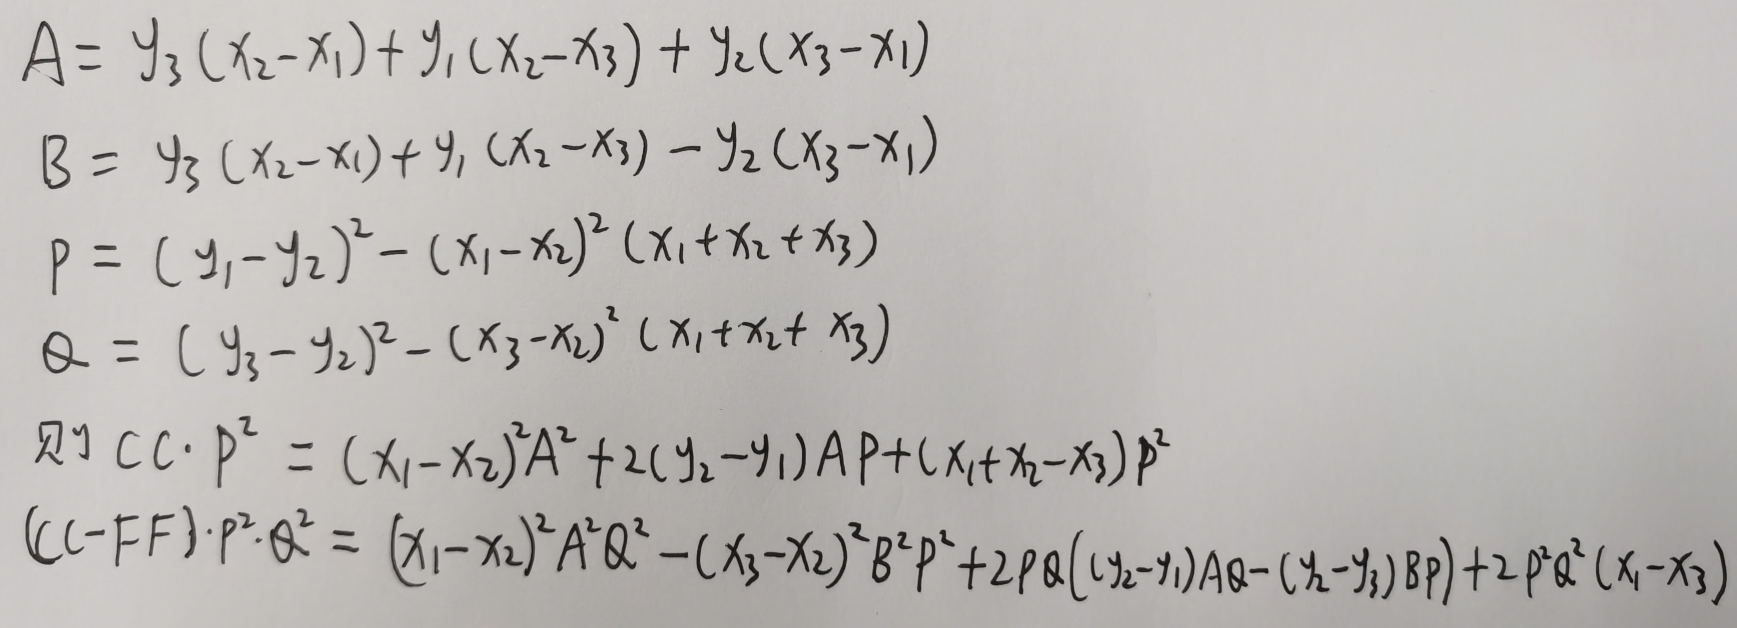 A = y₃(x₂-x₁)+y₁(x₂-x₃)+y₂(x₃-x₁)
B = y₃(x₂-x₁)+y₁(x₂-x₃)-y₂(x₃-x₁)
P = (y₁-y₂)²-(x₁-x₂)²(x₁+x₂+x₃)
Q = (y₃-y₂)²-(x₃-x₂)²(x₁+x₂+x₃)
则 CC·P² = (x₁-x₂)²A²+2(y₂-y₁)AP+(x₁+x₂-x₃)P²
(CC-FF)·P²·Q² = (x₁-x₂)²A²Q²-(x₃-x₂)²B²P²+2PQ((y₂-y₁)AQ-(y₂-y₃)BP)+2P²Q²(x₁-x₃)